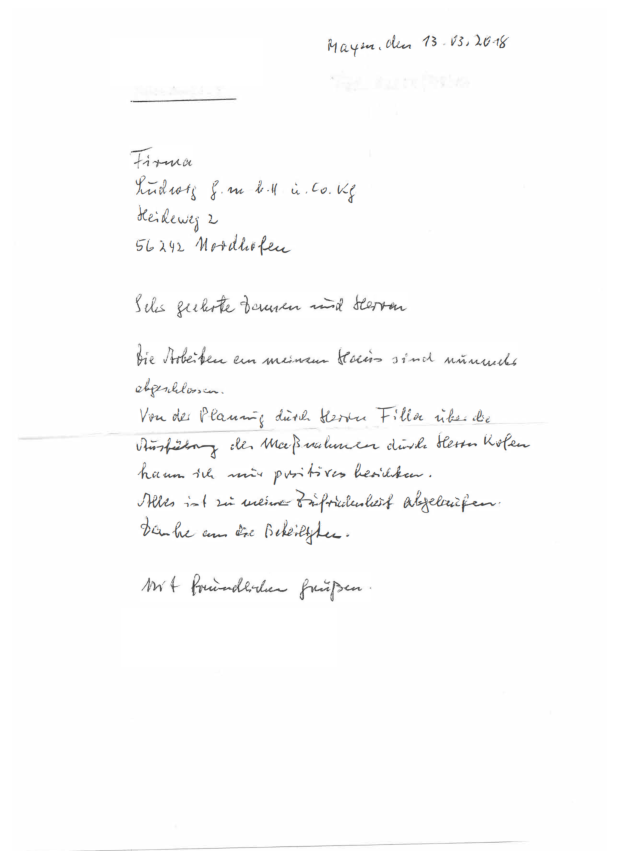 Mayen, den 13.03.2018
Firma
Ludwig G.m.b.H u. Co. Kg
Heideweg 2
56242 Nordhofen
Sehr geehrte Damen und Herren
Die Arbeiten an meinem Haus sind nunmehr
abgeschlossen.
Von der Planung durch Herrn Filla über die
Ausführung der Maßnahmen durch Herrn Kofen
kann ich nur positives berichten.
Alles ist zu meiner Zufriedenheit abgelaufen.
Danke an die Beteiligten.
Mit freundlichen Grüßen.